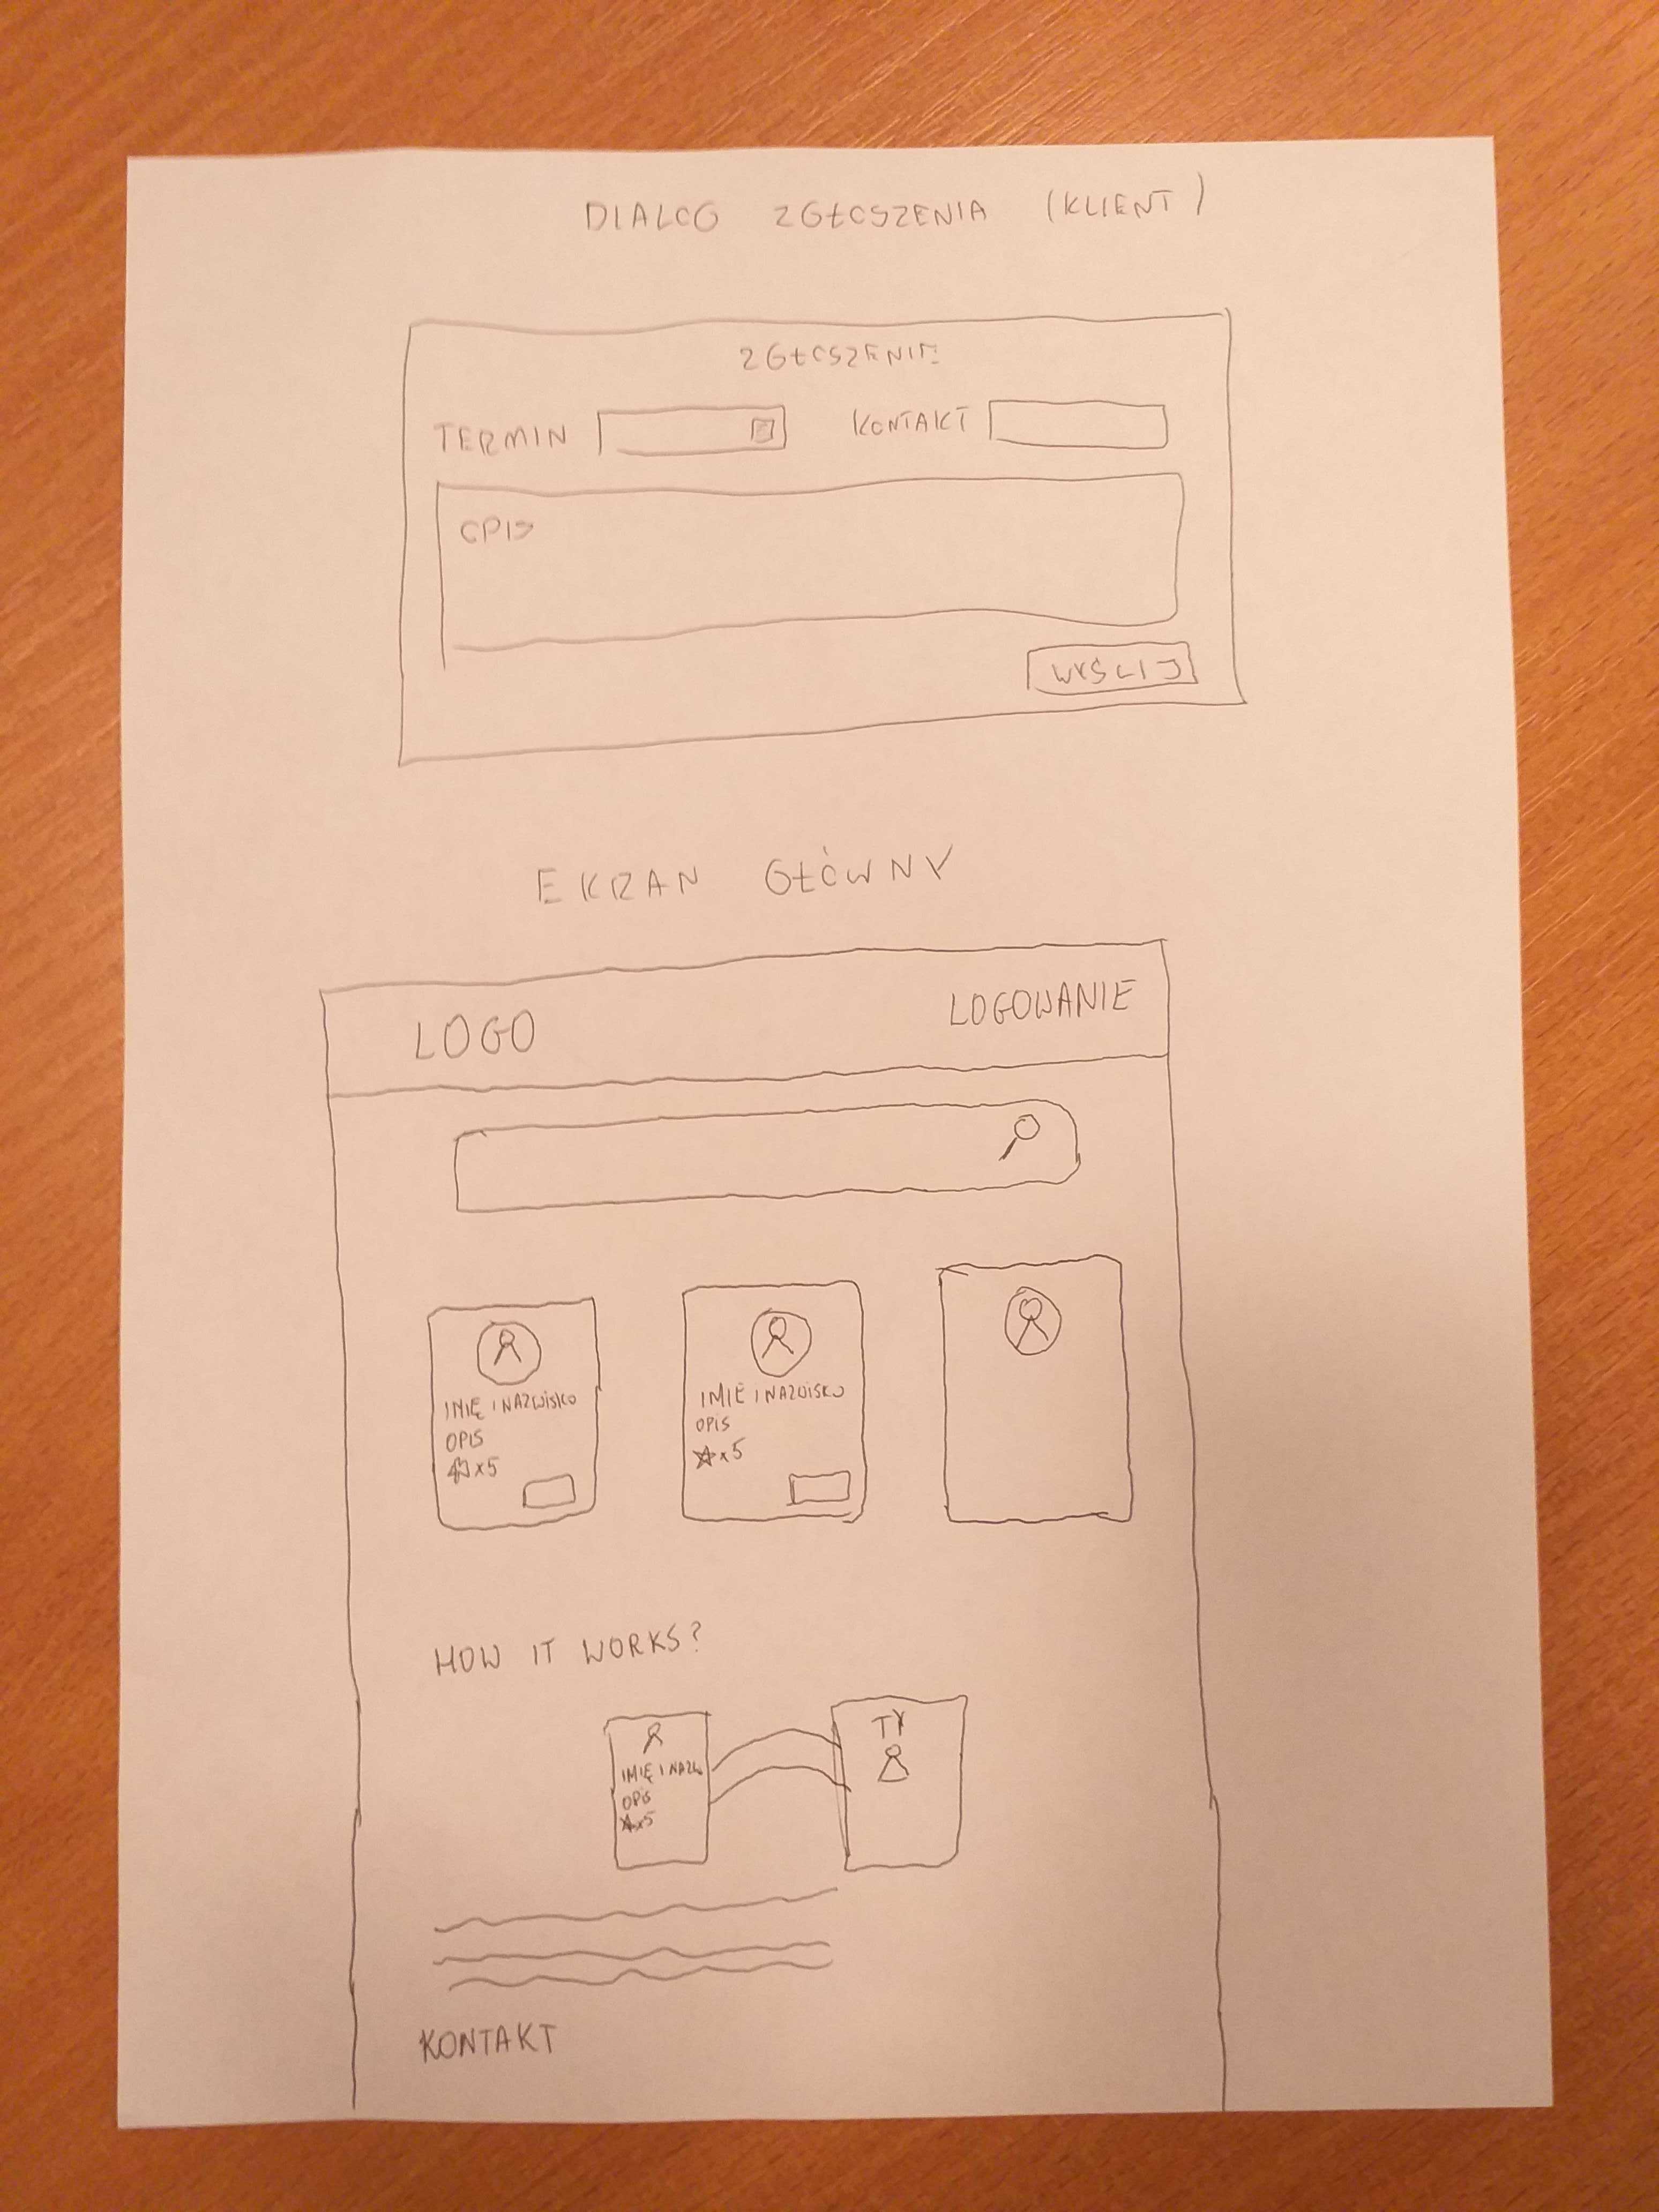 DIALOG ZGŁOSZENIA (KLIENT)
ZGŁOSZENIE
TERMIN KONTAKT
OPIS
WYŚLIJ
EKRAN GŁÓWNY
LOGO LOGOWANIE
IMIĘ I NAZWISKO
OPIS
☆x5
IMIĘ I NAZWISKO
OPIS
☆x5
HOW IT WORKS?
IMIĘ I NAZW
OPIS
☆x5
TY
KONTAKT